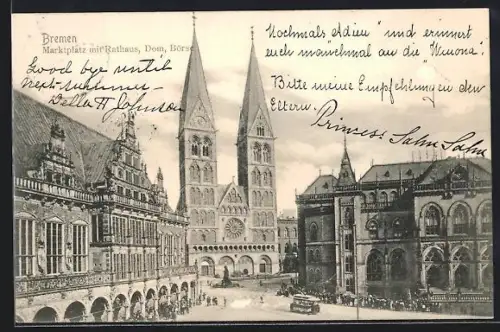 Bremen
Marktplatz mit Rathaus, Dom, Börse
Good bye until
Next summer –
Della H Johnson
Nochmals Adieu" und erinnert
euch manchmal an die "Winona".
Bitte meine Empfehlungen den
Eltern.
Princess Sahn Sahn